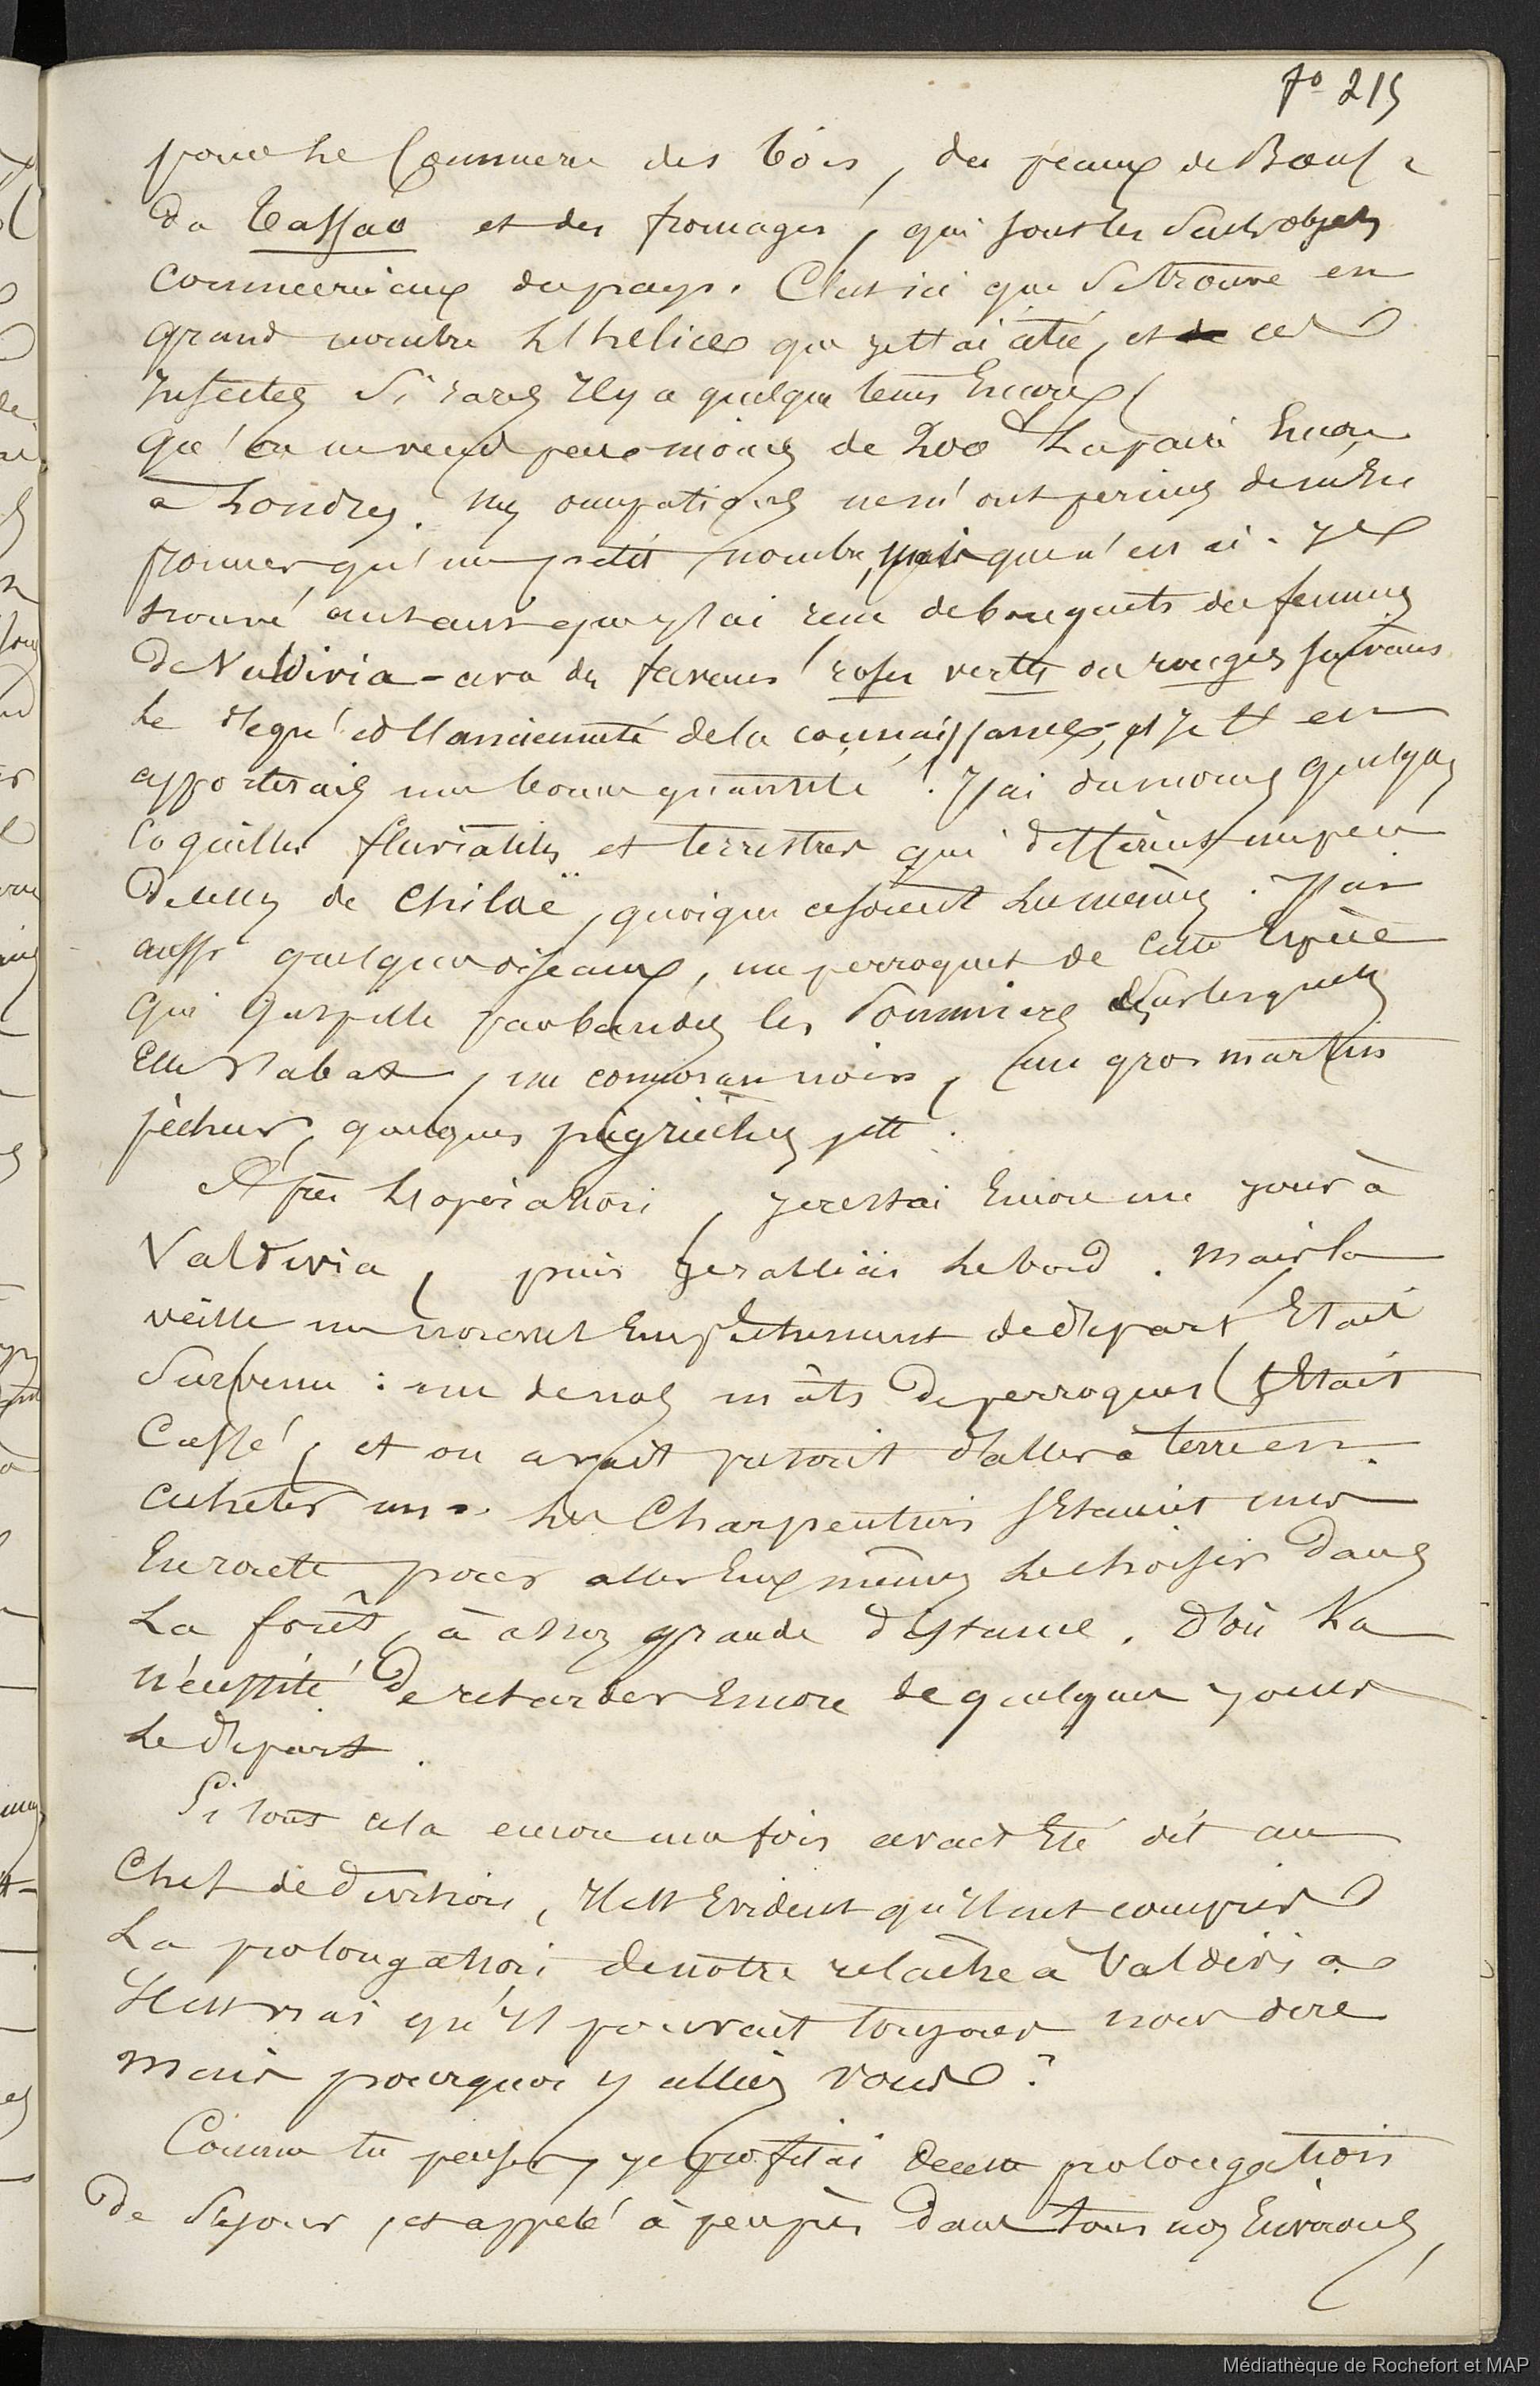 fo 215
pour le Commerce des bois, des peaux de Boeuf
Du Tassao et des fromages, qui sont les seuls objets
commerciaux du pays. C'est ici que se trouve en
grand nombre l'hélice que je t'ai cité, et ces
insectes si rares il y a quelque tems encore
qu'on ne vend pas moins de 200 la paire encore
a Londres. Mes occupations ne m'ont permis de m'en
procurer qu'un petit nombre, que n'en ai-je
trouvé autant que j'ai reçu de bouquets des femmes
De Valdivia - avec des faveurs roses vertes ou rouges suivant
le degré et l'ancienneté de la connaissance, et je t'en
apporterais une bonne quantité! J'ai du moins quelques
coquilles fluviatiles et terrestres qui diffèrent un peu
de celles de Chiloë, quoique ce soient les mêmes. J'ai
aussi quelques oiseaux, un perroquet de cette espèce
qui gaspille par bandes les Pommiers sur lesquels
elle s'abat, un cormoran noir, un gros martin
pêcheur, quelques pigrièches, ett.
Après l'opération, je restai encore un jour à
Valdivia, puis je ralliais le bord. Mais la
veille un nouvel empêchement de départ était
survenu : un de nos mâts de perroquet s'était
cassé, et on avait prescrit d'aller à terre en
acheter un. Les Charpentiers s'étaient mis
en route pour aller eux mêmes le choisir dans
la forêt, à assez grande distance. D'où la
nécessité de retarder encore de quelques jours
le départ.
Si tout cela encore une fois avait été dit au
Chef de division, il est évident qu'il eut compris
la prolongation de notre relâche à Valdivia
Il est vrai qu'il pouvait toujours nous dire
mais pourquoi y alliez vous?
Comme tu penses, je profitai de cette prolongation
de séjour, et appelé à peu près dans tous nos environs,
Médiathèque de Rochefort et MAP